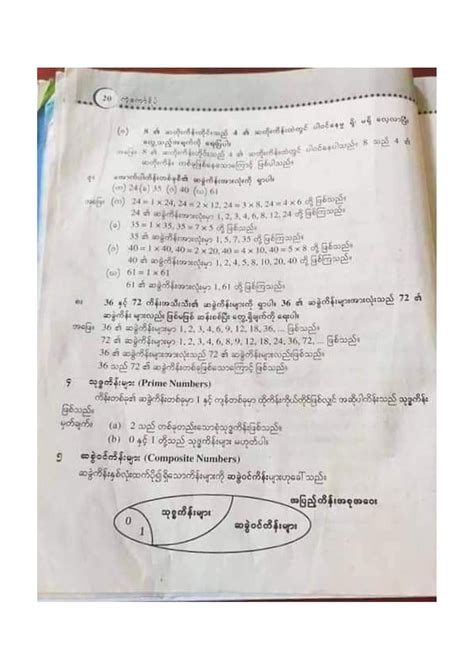 20
(ဂ) 8 ၏ ဆတိုးကိန်းတိုင်းသည် 4 ၏ ဆတိုးကိန်းထဲတွင် ပါဝင်နေမှု ရှိ၊ မရှိ လေ့လာပြီး
တွေ့သည့်အချက်ကို ရေးပြပါ။
အဖြေ။ 8 ၏ ဆတိုးကိန်းတိုင်းသည် 4 ၏ ဆတိုးကိန်းထဲတွင် ပါဝင်နေပါသည်။ 8 သည် 4 ၏
ဆတိုးကိန်း တစ်ခုဖြစ်နေသောကြောင့် ဖြစ်ပါသည်။
၇။ အောက်ပါကိန်းတစ်ခုစီ၏ ဆခွဲကိန်းအားလုံးကို ရှာပါ။
(က) 24 (ခ) 35 (ဂ) 40 (ဃ) 61
အဖြေ။ (က) 24 = 1 × 24, 24 = 2 × 12, 24 = 3 × 8, 24 = 4 × 6 တို့ ဖြစ်သည်။
24 ၏ ဆခွဲကိန်းအားလုံးမှာ 1, 2, 3, 4, 6, 8, 12, 24 တို့ ဖြစ်ကြသည်။
(ခ) 35 = 1 × 35, 35 = 7 × 5 တို့ ဖြစ်သည်။
35 ၏ ဆခွဲကိန်းအားလုံးမှာ 1, 5, 7, 35 တို့ ဖြစ်ကြသည်။
(ဂ) 40 = 1 × 40, 40 = 2 × 20, 40 = 4 × 10, 40 = 5 × 8 တို့ ဖြစ်သည်။
40 ၏ ဆခွဲကိန်းအားလုံးမှာ 1, 2, 4, 5, 8, 10, 20, 40 တို့ ဖြစ်ကြသည်။
(ဃ) 61 = 1 × 61
61 ၏ ဆခွဲကိန်းအားလုံးမှာ 1, 61 တို့ ဖြစ်ကြသည်။
၈။ 36 နှင့် 72 ကိန်းအသီးသီး၏ ဆခွဲကိန်းများကို ရှာပါ။ 36 ၏ ဆခွဲကိန်းများအားလုံးသည် 72 ၏
ဆခွဲကိန်း များလည်း ဖြစ်မဖြစ် ဆန်းစစ်ပြီး တွေ့ရှိချက်ကို ရေးပါ။
အဖြေ။ 36 ၏ ဆခွဲကိန်းများမှာ 1, 2, 3, 4, 6, 9, 12, 18, 36, ... ဖြစ်သည်။
72 ၏ ဆခွဲကိန်းများမှာ 1, 2, 3, 4, 6, 8, 9, 12, 18, 24, 36, 72, ... ဖြစ်သည်။
36 ၏ ဆခွဲကိန်းများအားလုံးသည် 72 ၏ ဆခွဲကိန်းများလည်းဖြစ်သည်။
36 သည် 72 ၏ ဆခွဲကိန်းတစ်ခုဖြစ်သောကြောင့် ဖြစ်ပါသည်။
၄ သုဒ္ဓကိန်းများ (Prime Numbers)
ကိန်းတစ်ခု၏ ဆခွဲကိန်းတစ်ခုမှာ 1 နှင့် ကျန်တစ်ခုမှာ ထိုကိန်းကိုယ်တိုင်ဖြစ်လျှင် အဆိုပါကိန်းသည် သုဒ္ဓကိန်း
ဖြစ်သည်။
မှတ်ချက်။ (a) 2 သည် တစ်ခုတည်းသောစုံသုဒ္ဓကိန်း ဖြစ်သည်။
(b) 0 နှင့် 1 တို့သည် သုဒ္ဓကိန်းများ မဟုတ်ပါ။
၅ ဆခွဲဝင်ကိန်းများ (Composite Numbers)
ဆခွဲကိန်းနှစ်လုံးထက်ပို၍ရှိသောကိန်းများကို ဆခွဲဝင်ကိန်းများဟုခေါ်သည်။
အပြည့်ကိန်းအစုအဝေး
သုဒ္ဓကိန်းများ
0
1
ဆခွဲဝင်ကိန်းများ